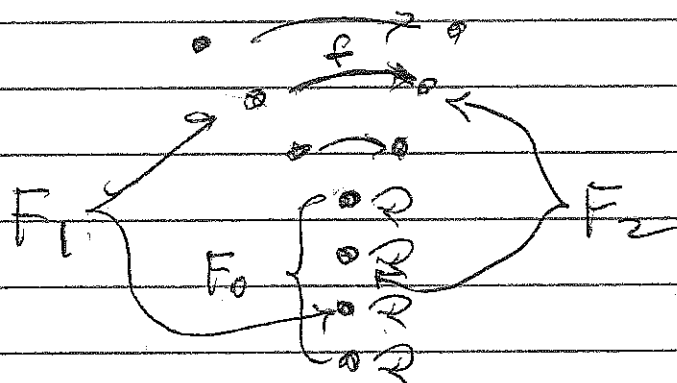 f
F₁
F₀
F₂